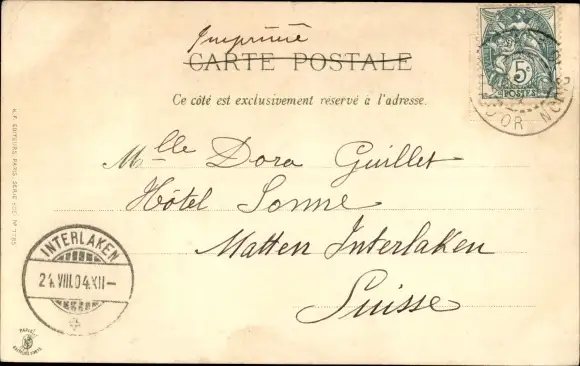 Imprimé
CARTE POSTALE
Ce côté est exclusivement reservé à l'adresse.
5c
POSTES
D'OR
Mlle Dora Guillet
Hôtel Sonne
Matten Interlaken
Suisse
INTERLAKEN
24.VIII.04.XII–